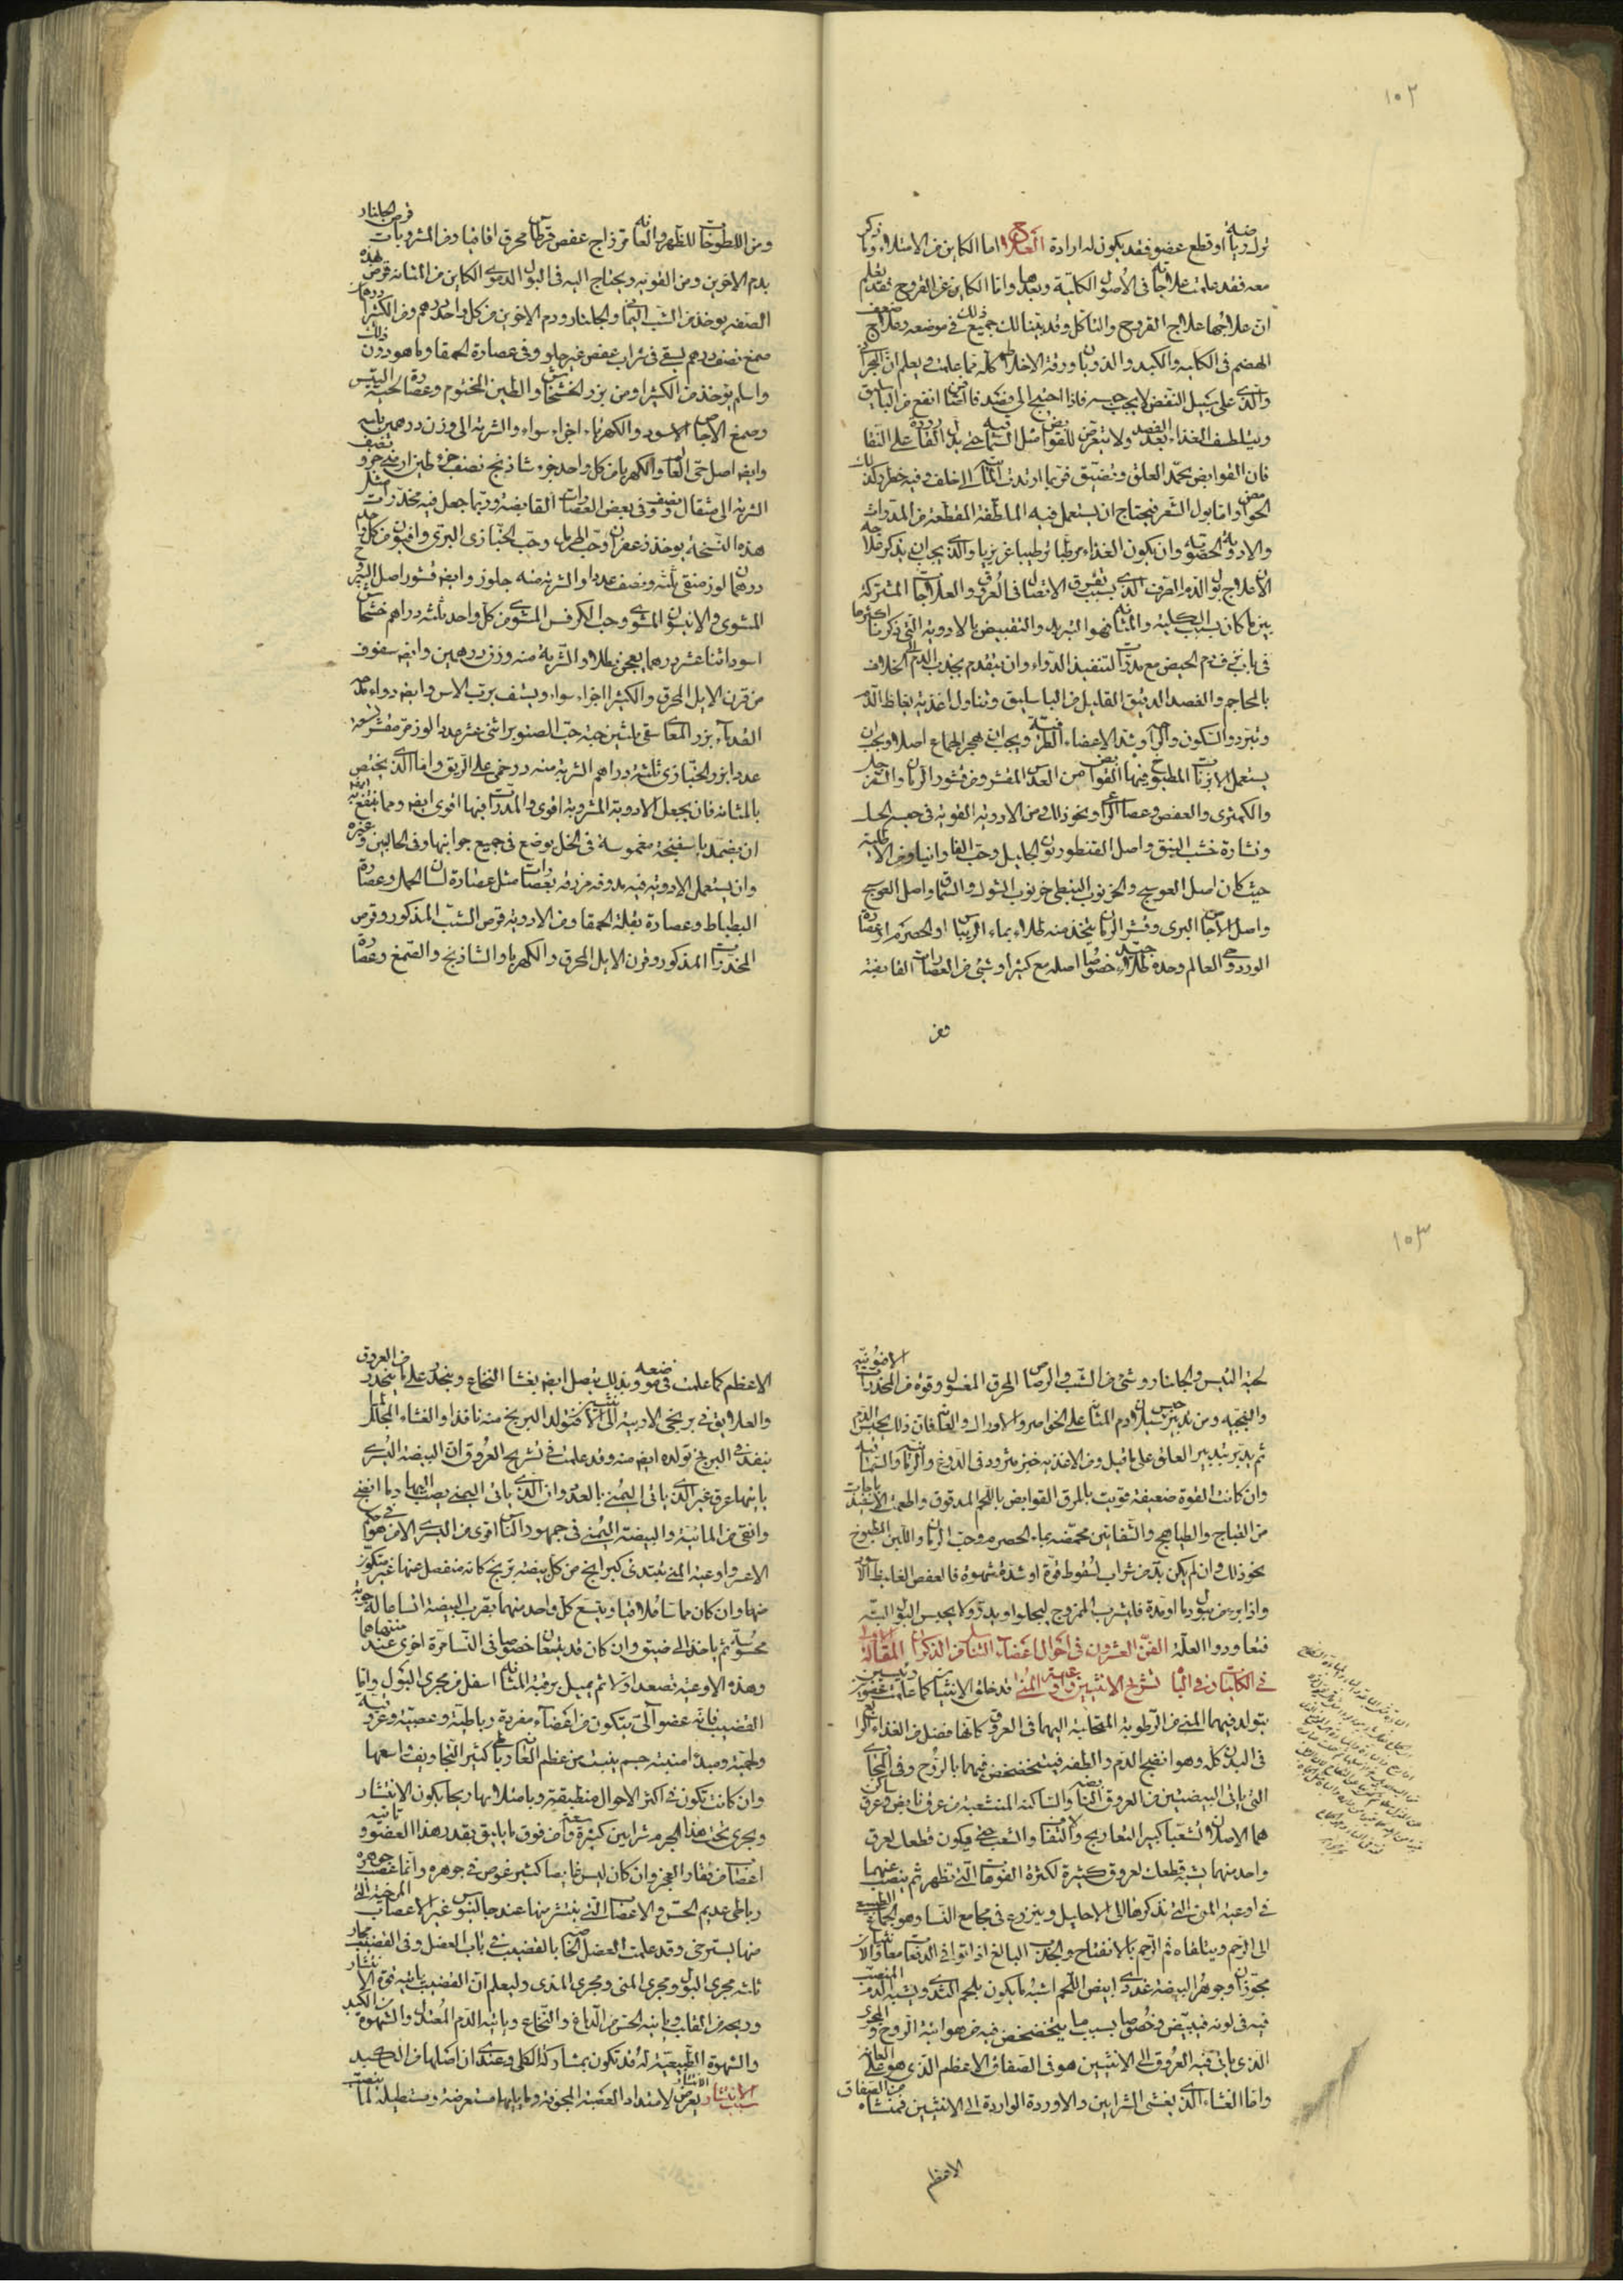 ١٠٢
ترك رياضة او قطع عضو فقد يكون له ارادة العلاج اما الكاين من الامتلاء وما ذكر
معه فقد علمت علاجاته فى الأصول الكلية وبعدها واما الكاين عن القروح فقد يعلم
ان علاجها علاج القروح والتاكل وقد بينا لك جميع ذلك فى موضعه وعلاج ضعف
الهضم فى الكلية والكبد والذوبان ورقة الاخلاط كله مما علمت ويعلم ان البحران
والذى على سبيل النقض لا يجب حبسه فاذا احتيج الى فصد فالصافن انفع من الباسليق
ويلطف الغذاء بعد الفصد ولا يتعرض للقوابض مثل السماقية حتى يدل القارورة على النقا
فان القوابض تجمد العلق وتضيق فربما ارتدت المائية الى خلف وفيه خطر وكذلك
الحوامض واما بول الشعر فيحتاج ان يستعمل فيه الملطفة المقطعة من المدرات
والادوية الحصوية وان يكون الغذاء مرطبا ترطيبا غريزيا والذى يجب ان يذكر علاجه
الأعلاج بول الدم الصرف الذى بسبب تفرق الاتصال فى العروق والعلاجات المشتركة
بين ما كان بسبب الكلية والمثانة هو التبريد والتقبيض بالادوية التى ذكرنا اكثرها
فى باب نزف دم الحيض مع مدرات لتنفيذ الدواء وان يتقدم بجذب الدم الى الخلاف
بالمحاجم والفصد الدقيق القليل من الباسليق وتناول اغذية تغلظ الدم
وتبرد والسكون والراحة وشد الاعضاء الطرفية ويجب ان يهجر الجماع اصلا ويجب ان
يستعمل الابزنات المطبوخ فيها القوابض من العدس المقشر ومن قشور الرمان والسفرجل
والكمثرى والعفص وعصا الراعى ونحو ذلك ومن الادوية القوية فى حبسه
ونشارة خشب النبق واصل القنطوريون الجليل وحب الفاوانيا ومن الاطلية
حيث كان اصل العوسج والخرنوب النبطى خرنوب الشوك والسماق واصل العوسج
واصل الاجاص البرى وقشر الرمان يتخذ منه طلاء بماء الريباس او الحصرم او عصارة
الورد وحى العالم وحده طلاء جيد خصوصا اصله مع كثيرا وشئ من العصارات القابضة
ومن
ومن اللطوخات للظهر والعانة مر زاج عفص قرطاس محرق اقاقيا ومن المشروبات قرص الجلنار
بدم الاخوين ومن القوية ويحتاج اليه فى البول الدموى الكاين من المثانة قرص بهذه
الصفة يوخذ من الشب اليمانى والجلنار ودم الاخوين من كل واحد درهم ومن الكثيرا درهمان
صمغ نصف درهم يسقى فى شراب عفص غير حلو وفى عصارة الحمقا وما هو دون ذلك
واسلم يوخذ من الكثيرا ومن بزر الخشخاش والطين المختوم وعصارة لحية التيس
وصمغ الاجاص الاسود والكهرباء اجزاء سواء والشربة الى وزن درهمين
وايض اصل حى العالم والكهربا من كل واحد جزء شاذنج نصف جزء طين ارمنى جزء ونصف
الشربة الى مثقال ونصف وفى بعض العصارات القابضة وربما جعل فيه مخدرات مثل
هذه النسخة يوخذ زعفران وحب الحرمل وحب الخبازى البرى وافيون من كل واحد
درهمان لوز منقى ثلثه ونصف عددا والشربة منه جلوز وايض قشور اصل اليبروح
المشوى والانيسون المشوى وحب الكرفس المشوى من كل واحد ثلثه دراهم خشخاش
اسود اثنا عشر درهما يعجن بطلاء والشربة منه وزن درهمين وايض سفوف
من قرن الايل المحرق والكثيرا اجزاء سواء ويسف برب الاس وايض دواء مدحه
القدماء بزر المغاسقى ثلثين حبة حب الصنوبر اثنى عشر عددا لوز مر مقشر تسعة
عدد ابزر الخبازى ثلثه دراهم الشربة منه درخمى على الريق واما الذى يختص
بالمثانة فان يجعل الادوية المشروبة اقوى والمدرات فيها اقوى ايض ومما ينتفع به
ان يضمد باسفنجة مغموسة فى الخل يوضع فى جميع جوانبها وفى الحالبين وغيره
وان يستعمل الادوية فيه مدوفة مزرقة بعصارات مثل عصارة لسان الحمل وعصارة
البطباط وعصارة بقلة الحمقا ومن الادوية قرص الشب المذكور وقرص
المخدرات المذكور وقرن الايل المحرق والكهربا والشاذنج والصمغ وعصارة
١٠٣
لحية التيس والجلنار وشئ من الشب والرصاص المحرق المغسول وقوة من المخدرات الافيونية
والبنجية ومن تدبير حبس سيلان دم المثانة على الخواصر والاوراك والعانة فان ذلك يحبس الدم
ثم يدبر بتدبير العلق على ما قيل ومن الاغذية خبز مثرود فى الدوغ والرمانية والسماقية
وان كانت القوة ضعيفة قويت بالمرق القوابض باللحم المدقوق واطعمت الاسفيدباجات
من القباج والطياهيج والشفانين محمضة بماء الحصرم وحب الرمان واللبن المطبوخ
نحو ذلك فان لم يكن بد من شراب لسقوط قوة او شدة شهوة فالعفص الغليظ الاسود
واذا برء من بول دما او مدة فليشرب الممزوج ليجلوا ويدر ولا يحبس البول البتة
فتعاود العلة الفن العشرون فى احوال اعضاء التناسل من الذكران المقالة الاولى
فى الكليات وفى الباه تشريح الانثيين واوعية المنى قد خلق الانثيان كما علمت عضوين رئيسين
يتولد فيهما المنى من الرطوبة المتحلبة اليهما فى العروق كانها فضل من الغذاء الرابع
فى البدن كله وهو انضج الدم والطفه فيتخضخض فيهما بالروح وفى المجارى
التى ياتى البيضتين من العروق النابضة والساكنة المتشعبة من عرق نابض وعرق ساكن
هما الاصلان تشعبا كثير التعاريج والالتفاف والشعب حتى يكون قطعك لعرق
واحد منها يشبه قطعك لعروق كثيرة لكثرة الفوهات التى تظهر ثم ينصب عنهما
فى اوعية المنى التى نذكرها الى الاحليل وينزرق فى مجامع النسا وهو الجماع الطبيعى
الى الرحم ويتلقاه فم الرحم بالانفتاح والجذب البالغ اذا توافى الدفعتان معا والانثيان
مجوفتان وجوهر البيضة غددى ابيض اللحم اشبه ما يكون بلحم الثدى ويشبه الدم المنصب
فيه فى لونه فيبيض وخصوصا بسبب ما يتخضخض فيه من هوائية الروح والمجرى
الذى ياتى فيه العروق الى الانثيين هو فى الصفاق الاعظم الذى هو على العانة
واما الغشاء الذى يغشى الشرايين والاوردة الواردة الى الانثيين فمنشاه من الصفاق
الاعظم
الاعظم كما علمت فى موضعه وبذلك يتصل ايض بغشا النخاع وينحدر على ما ينحدر من العروق
والعلايق فى بربخى الاربية الى الانثيين فتولد البربخ منه نافذا والغشاء المجلل لما
ينفذ فى البربخ تولده ايض منه وقد علمت فى تشريح العروق ان البيضة اليسرى
ياتيها عرق غير الذى ياتى اليمنى بالعدد وان الذى ياتى اليمنى يصب اليها دما انضج
وانقى من المائية والبيضة اليمنى فى جمهور الناس اقوى من اليسرى الا من هو فى حكم
الاعسر واوعية المنى يبتدى كبرابخ من كل بيضة بربخ كانه منفصل عنها غير متكون
منها وان كان مماسا ملاقيا ويتسع كل واحد منهما بقرب البيضة اتساعا له جوبة
محسوسة ثم ياخذ الى ضيق وان كان قد يتسعان خصوصا فى النسا مرة اخرى عند منتهاهما
وهذه الاوعية تصعد اولا ثم يميل برقبة المثانة اسفل من مجرى البول واما
القضيب فانه عضو آلى يتكون من اعضاء مفردة رباطية وعصبية وعروقية
ولحمية ومبدا منبته جسم ينبت من عظم العانة رباطى كثير التجاويف واسعها
وان كانت تكون فى اكثر الاحوال منطبقة وبامتلائها ريحا يكون الانتشار
ويجرى تحت هذا الجرم شرايين كثيرة واسعة فوق ما يليق بقدر هذا العضو وتاتيه
اعصاب من فقار العجز وان كان ليس غايصا كثير غوص فى جوهره وانما عصب جوهره
رباطى عديم الحس والاعصاب التى ينتشر منها عند جالينوس غير الاعصاب المرخية التى
منها يسترخى وقد علمت العضل الخاصة بالقضيب فى باب العضل وفى القضيب مجار
ثلثة مجرى البول ومجرى المنى ومجرى المذى وليعلم ان القضيب ياتيه قوة الانتشار
وريحه من القلب وياتيه الحس من الدماغ والنخاع وياتيه الدم المعتدل والشهوة من الكبد
والشهوة الطبيعية له قد تكون بمشاركة الكلى وعندى ان اصلها من الكبد
سبب الانتشار الانتشار يعرض لامتداد العصبة المجوفة وما يليها مستعرضة ومستطيلة لما ينصب